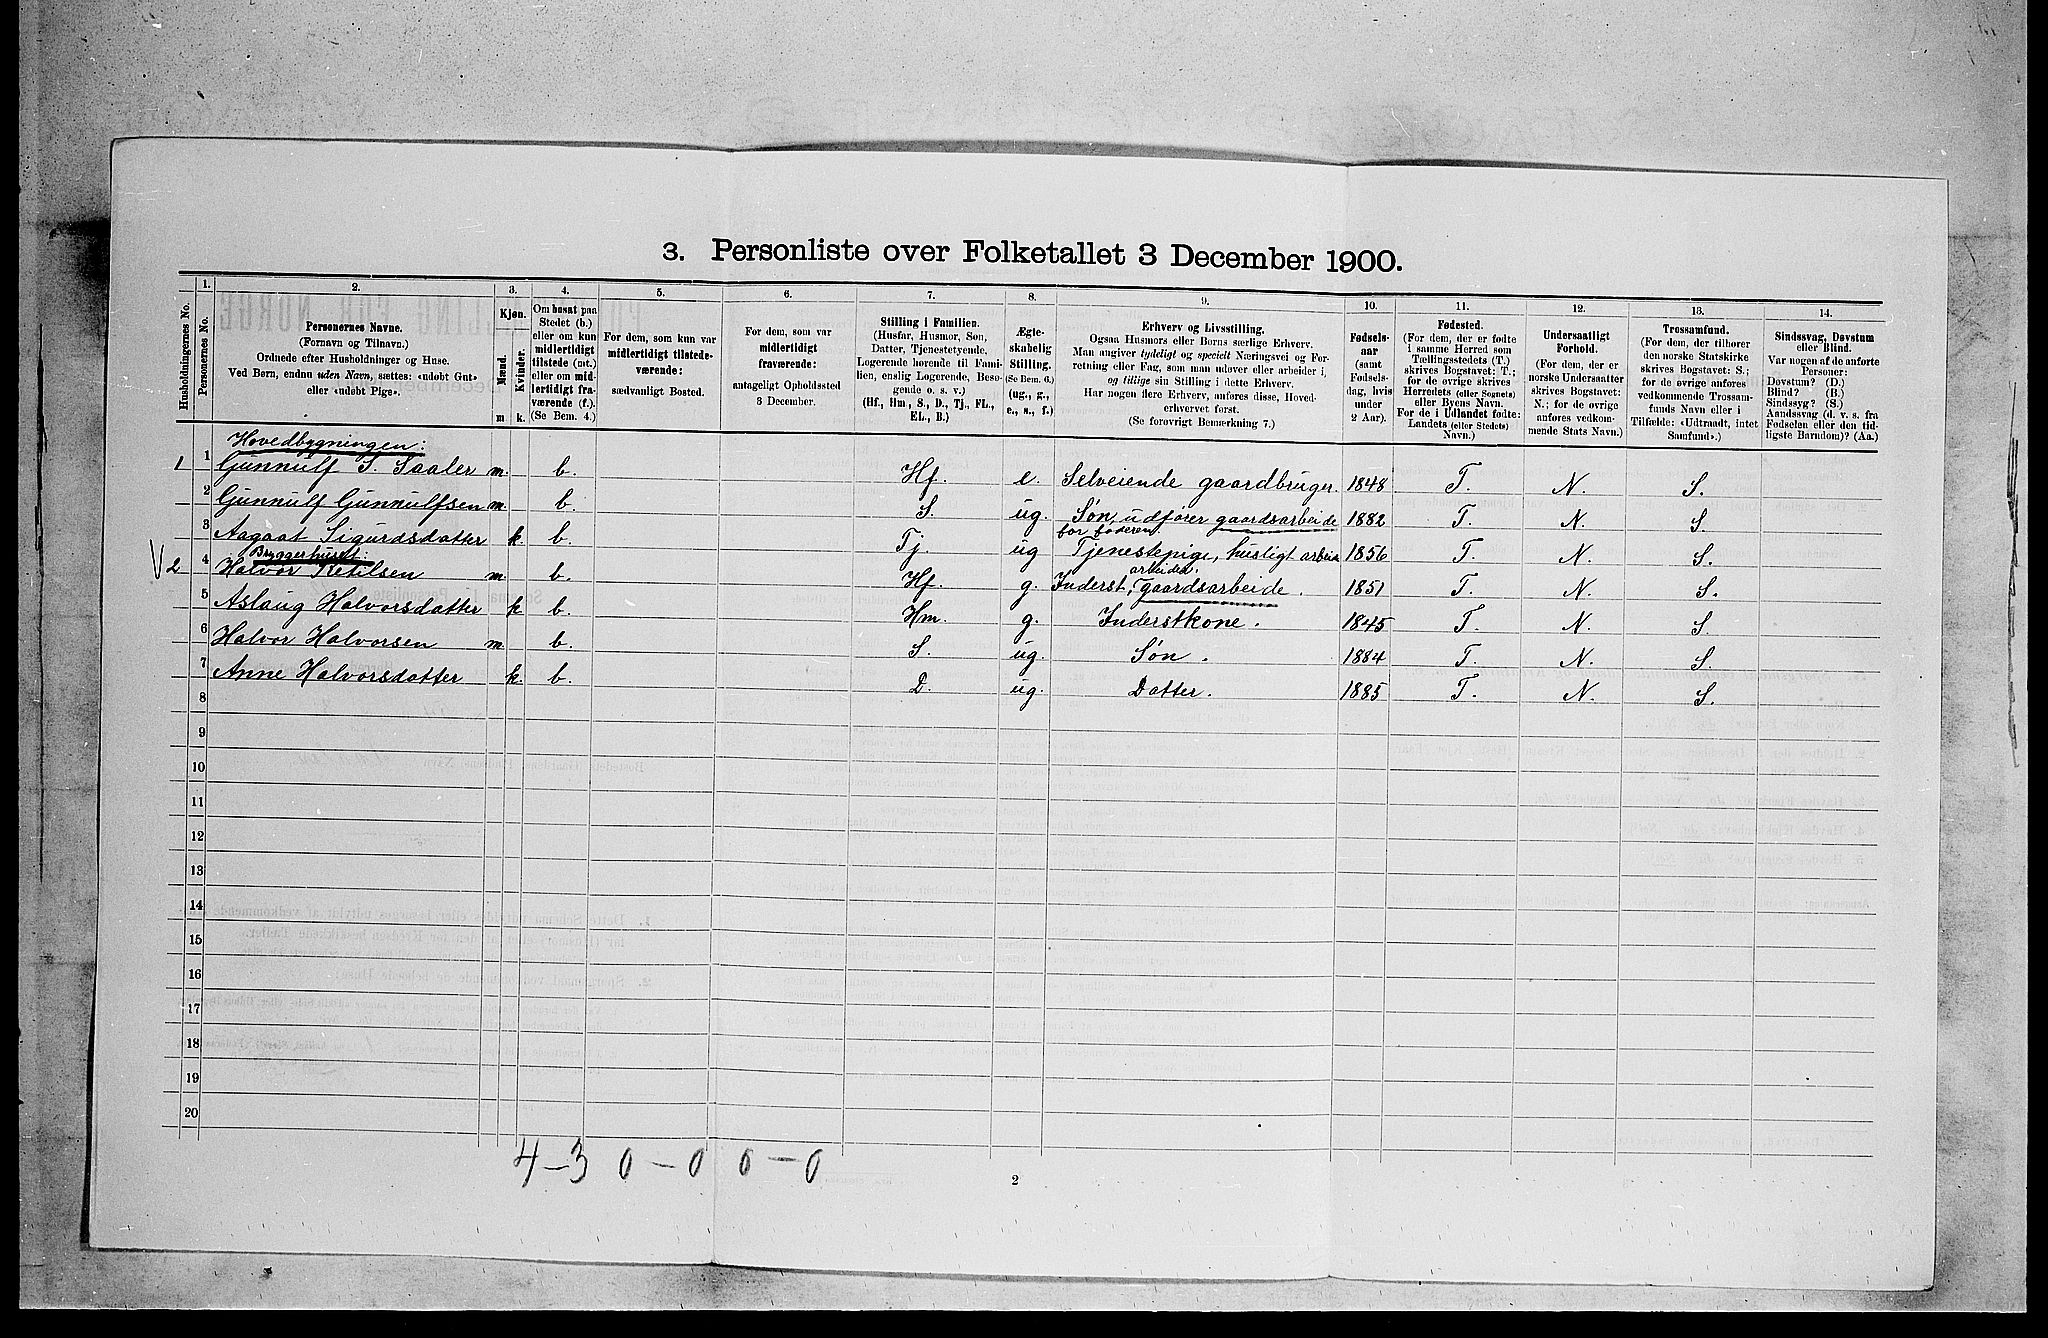 3. Personliste over Folketallet 3 December 1900.
1. 2. 3. 4. 5. 6. 7. 8. 9. 10. 11. 12. 13. 14.
Husholdningernes No.
Personernes No.
Personernes Navne.
(Fornavn og Tilnavn.)
Ordnede efter Husholdninger og Huse.
Ved Børn, endnu uden Navn, sættes: «udøbt Gut»
eller «udøbt Pige».
Kjøn.
Mænd.
Kvinder.
m k.
Om bosat paa
Stedet (b.)
eller om kun
midlertidigt
tilstede (mt.)
eller om mid-
lertidigt fra-
værende (f.).
(Se Bem. 4.)
For dem, som kun var
midlertidigt tilstede-
værende:
sædvanligt Bosted.
For dem, som var
midlertidigt
fraværende:
antageligt Opholdssted
3 December.
Stilling i Familien.
(Husfar, Husmor, Søn,
Datter, Tjenestetyende,
Logerende hørende til Fami-
lien, enslig Logerende, Besø-
gende o. s. v.)
(Hf., Hm., S., D., Tj., FL.,
EL., B.)
Ægte-
skabelig
Stilling.
(Se Bem. 6.)
(ug., g.,
e., s., f.)
Erhverv og Livsstilling.
Ogsaa Husmors eller Børns særlige Erhverv.
Man angiver tydeligt og specielt Næringsvei og For-
retning eller Fag, som man udøver eller arbeider i,
og tillige sin Stilling i dette Erhverv.
Har nogen flere Erhverv, anføres disse, Hoved-
erhvervet først.
(Se forøvrigt Bemærkning 7.)
Fødsels-
aar
(samt
Fødsels-
dag, hvis
under
2 Aar).
Fødested.
(For dem, der er fødte
i samme Herred som
Tællingsstedets (T.)
skrives Bogstavet: T.;
for de øvrige skrives
Herredets (eller Sognets)
eller Byens Navn.
For de i Udlandet fødte:
Landets (eller Stedets)
Navn.)
Undersaatligt
Forhold.
(For dem, der er
norske Undersaatter
skrives Bogstavet:
N.; for de øvrige
anføres vedkom-
mende Stats Navn.)
Trossamfund.
(For dem, der tilhører
den norske Statskirke
skrives Bogstavet: S.;
for de øvrige anføres
vedkommende Trossam-
funds Navn eller i
Tilfælde: «Udtraadt, intet
Samfund».)
Sindssvag, Døvstum
eller Blind.
Var nogen af de anførte
Personer:
Døvstum? (D.)
Blind? (B.)
Sindssyg? (S.)
Aandssvag (d. v. s. fra
Fødselen eller den tid-
ligste Barndom)? (Aa.)
Hovedbygningen:
1 1 Gunnulf S. Saaler m. b. Hf. e. Selveiende gaardbruger. 1848 T. N. S.
2 Gunnulf Gunnulfsen m. b. S. ug. Søn, udfører gaardsarbeide for faderen. 1882 T. N. S.
3 Aagaat Sigurdsdatter k. b. Tj. ug Tjenestepige, husligt arbeide 1856 T. N. S.
Bryggerhuset:
2 4 Halvor Ketilsen m. b. Hf. g. Inderst, gaardsarbeide. arbeider. 1851 T. N. S.
5 Aslaug Halvorsdatter k b. Hm. g. Inderstkone. 1845 T. N. S.
6 Halvor Halvorsen m. b. S. ug. Søn. 1884 T. N. S.
7 Anne Halvorsdatter k. b. D. ug. Datter. 1885 T. N. S.
8
9
10
11
12
13
14
15
16
17
18
19
20
4-3 0-0 0-0
2